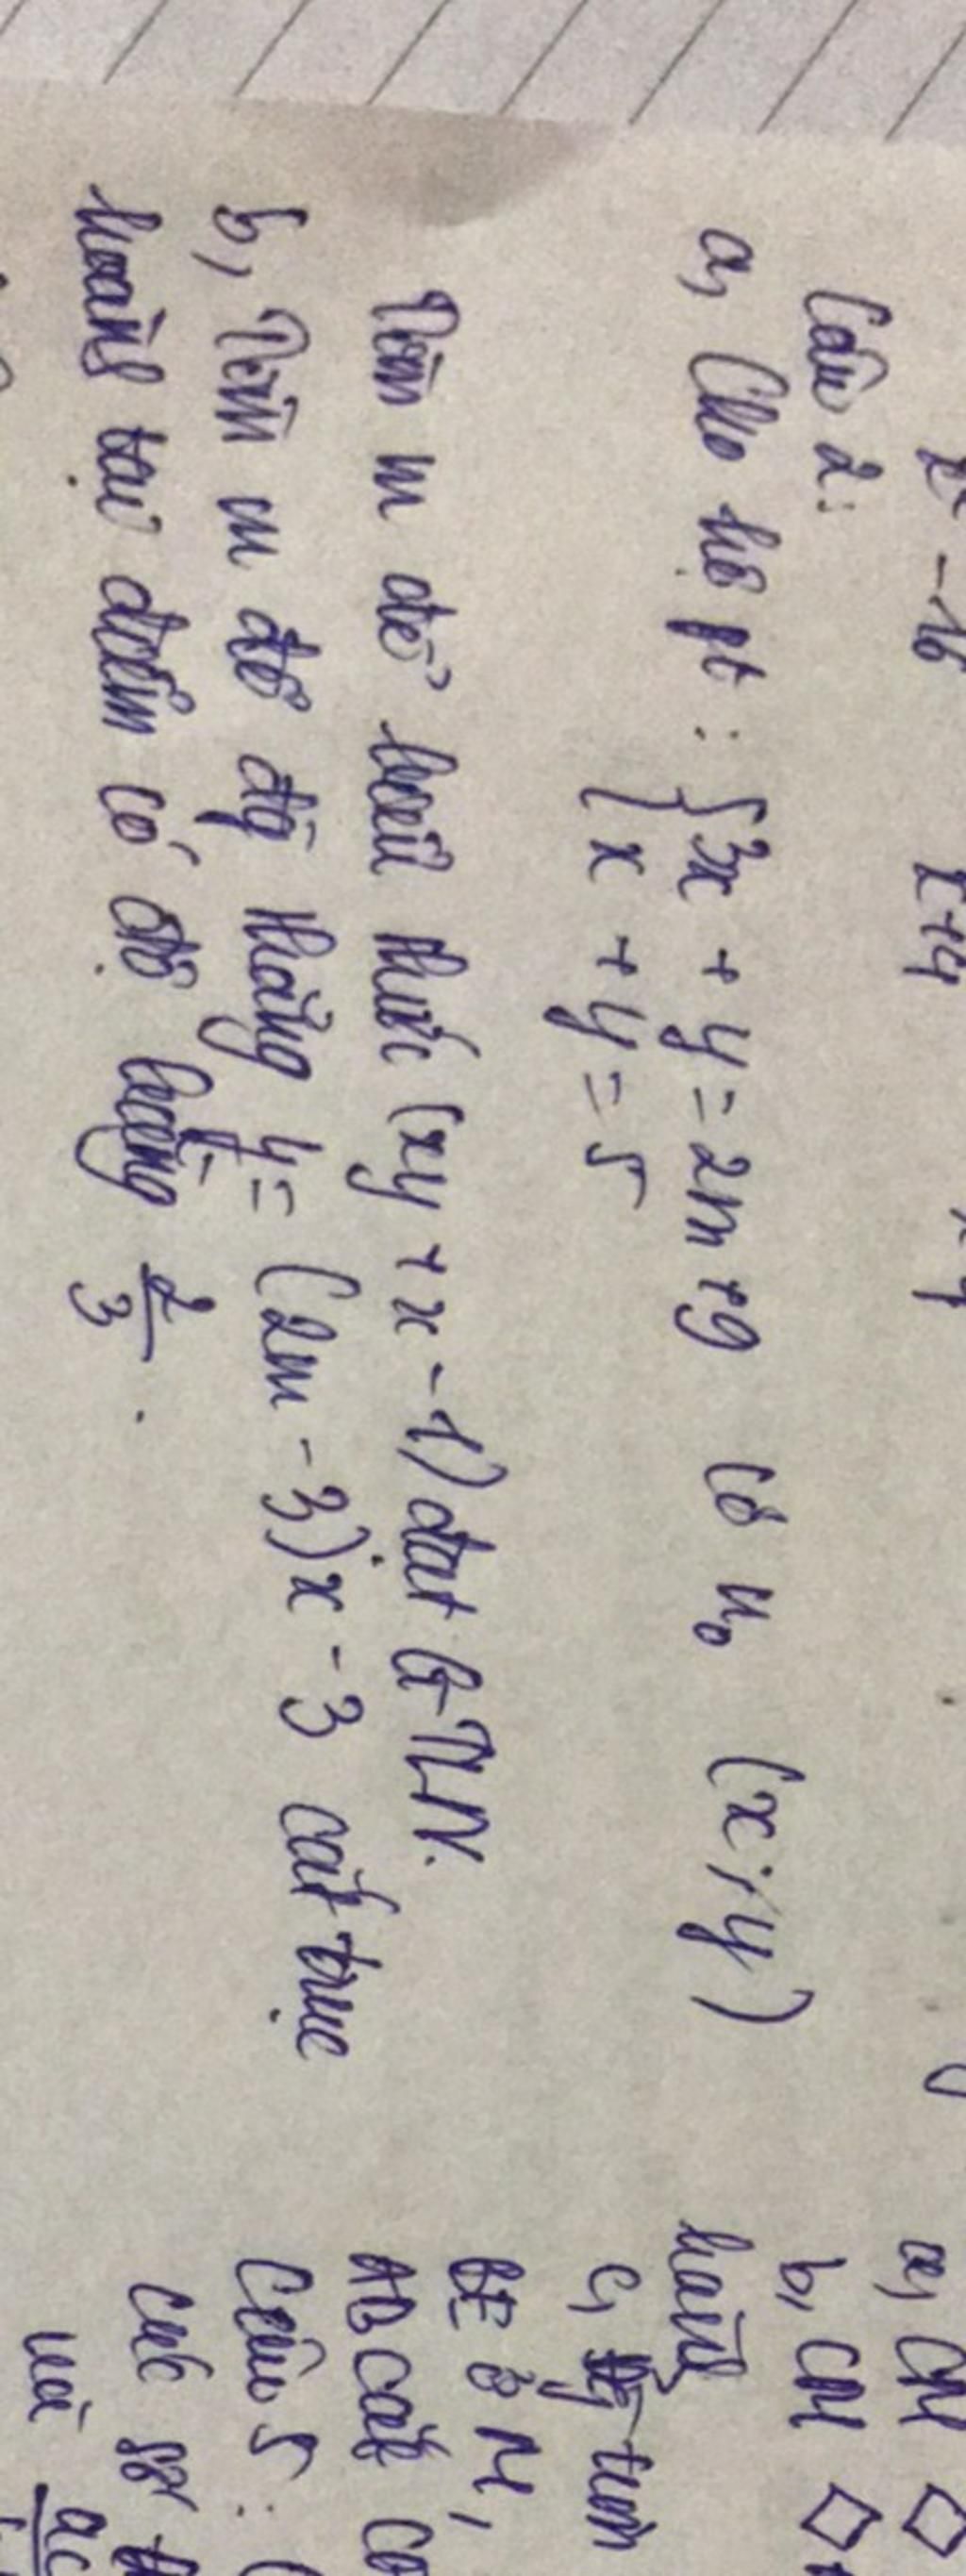 x - 16 x + 4
Câu 2:
a, Cho hệ pt : { 3x + y = 2m + 9 có n₀ (x; y)
{ x + y = 5
Tìm m để biểu thức (xy + x - 1) đạt GTLN.
b, Tìm m để đg thẳng y = (2m - 3)x - 3 cắt trục
hoành tại điểm có độ bằng 2/3.
a, CM ◇
b, CM ◇
hàng
c, tìm
BE ở M,
AB cắt
Câu 5 : (
các số